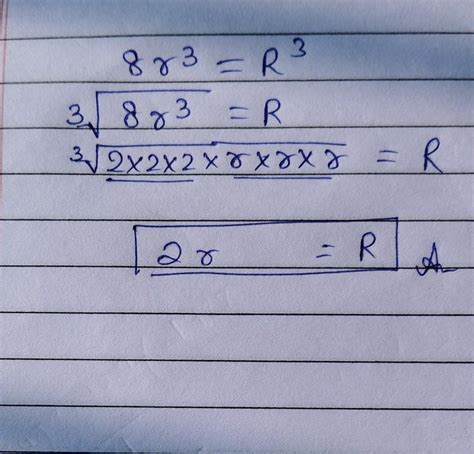 8r³ = R³
∛8r³ = R
∛2×2×2×r×r×r = R
2r = R A